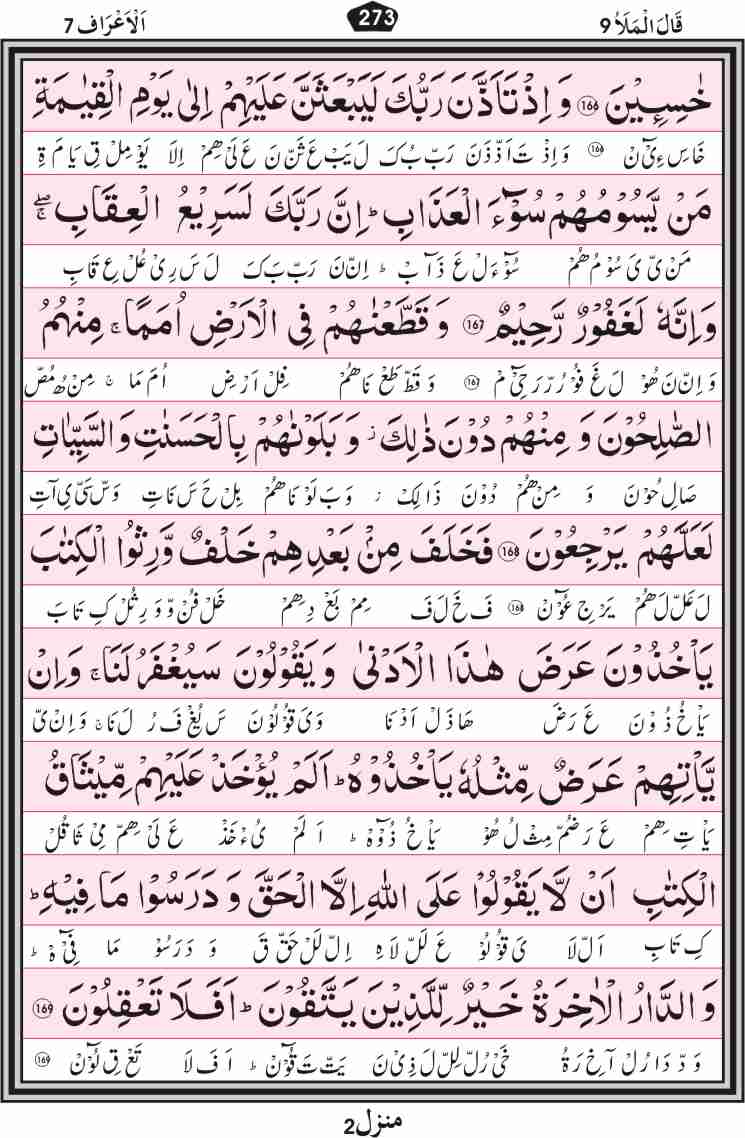 قَالَ الْمَلَاُ ۹ 273 اَلْاَعْرَاف 7
خٰسِـِٕيْنَ ﴿166﴾ وَ اِذْ تَاَذَّنَ رَبُّكَ لَيَبْعَثَنَّ عَلَيْهِمْ اِلٰى يَوْمِ الْقِيٰمَةِ
خَاسِ ءِىْٓ نْ ﴿166﴾ وَ اِذْ تَ اَذْ ذَنَ رَبْ بُ كَ لَ يَبْ عَ ثَنْ نَ عَ لَىْ هِمْ اِلَا يَوْ مِلْ قِ يَا مَ ةِ
مَنْ يَّسُوْمُهُمْ سُوْٓءَ الْعَذَابِ ؕ اِنَّ رَبَّكَ لَسَرِيْعُ الْعِقَابِ ۖۚ
مَنْ ىْ ىَ سُوْ مُ هُمْ سُوْٓءَ لْ عَ ذَآ بْ ؕ اِنْ نَ رَبْ بَ كَ لَ سَ رِىْ عُ لْ عِ قَابِ
وَ اِنَّهٗ لَغَفُوْرٌ رَّحِيْمٌ ﴿167﴾ وَ قَطَّعْنٰهُمْ فِى الْاَرْضِ اُمَمًا ۚ مِنْهُمُ
وَ اِنْ نَ هُوْ لَ غَ فُوْ رُرْ رَ حِىْٓ مْ ﴿167﴾ وَ قَطْ طَعْ نَا هُمْ فِلْ اَرْ ضِ اُ مَ مَا ۚ مِنْ هُ مُصْ
الصّٰلِحُوْنَ وَ مِنْهُمْ دُوْنَ ذٰلِكَ ؗ وَ بَلَوْنٰهُمْ بِالْحَسَنٰتِ وَ السَّيِّاٰتِ
صَالِ حُوْ نَ وَ مِنْ هُمْ دُوْ نَ ذَا لِكَ ؗ وَ بَ لَوْ نَا هُمْ بِلْ حَ سَ نَاتِ وَسْ سَىْ ىِ آتِ
لَعَلَّهُمْ يَرْجِعُوْنَ ﴿168﴾ فَخَلَفَ مِنْۢ بَعْدِهِمْ خَلْفٌ وَّرِثُوا الْكِتٰبَ
لَ عَلْ لَ هُمْ يَرْ جِ عُوْٓ نْ ﴿168﴾ فَ خَ لَ فَ مِمْ بَعْ دِهِمْ خَلْ فُنْ وْ وَ رِ ثُلْ كِ تَا بَ
يَاْخُذُوْنَ عَرَضَ هٰذَا الْاَدْنٰى وَ يَقُوْلُوْنَ سَيُغْفَرُ لَنَا ۚ وَ اِنْ
يَأْ خُ ذُوْنَ عَ رَ ضَ هَا ذَلْ اَدْ نَا وَ ىَ قُوْ لُوْنَ سَ ىُغْ فَ رُ لَ نَا ۚ وَ اِنْ ىْ
يَّاْتِهِمْ عَرَضٌ مِّثْلُهٗ يَاْخُذُوْهُ ؕ اَلَمْ يُؤْخَذْ عَلَيْهِمْ مِّيْثَاقُ
يَأْ تِ هِمْ عَ رَ ضُمْ مِثْ لُ هُوْ يَأْ خُ ذُوْٓهْ ؕ اَ لَمْ ىُءْ خَذْ عَ لَىْ هِمْ مِىْ ثَا قُلْ
الْكِتٰبِ اَنْ لَّا يَقُوْلُوْا عَلَى اللّٰهِ اِلَّا الْحَقَّ وَ دَرَسُوْا مَا فِيْهِ ؕ
كِ تَابِ اَلْ لَا ىَ قُوْ لُوْ عَ لَلْ لَا هِ اِلْ لَلْ حَقْ قَ وَ دَ رَ سُوْ مَا فِىْٓ هْ ؕ
وَ الدَّارُ الْاٰخِرَةُ خَيْرٌ لِّلَّذِيْنَ يَتَّقُوْنَ ؕ اَفَلَا تَعْقِلُوْنَ ﴿169﴾
وَ دْ دَا رُلْ آخِ رَةُ خَىْ رُلْ لِلْ لَ ذِىْ نَ يَتْ تَ قُوْٓنْ ؕ اَ فَ لَا تَعْ قِ لُوْٓنْ ﴿169﴾
منزل 2